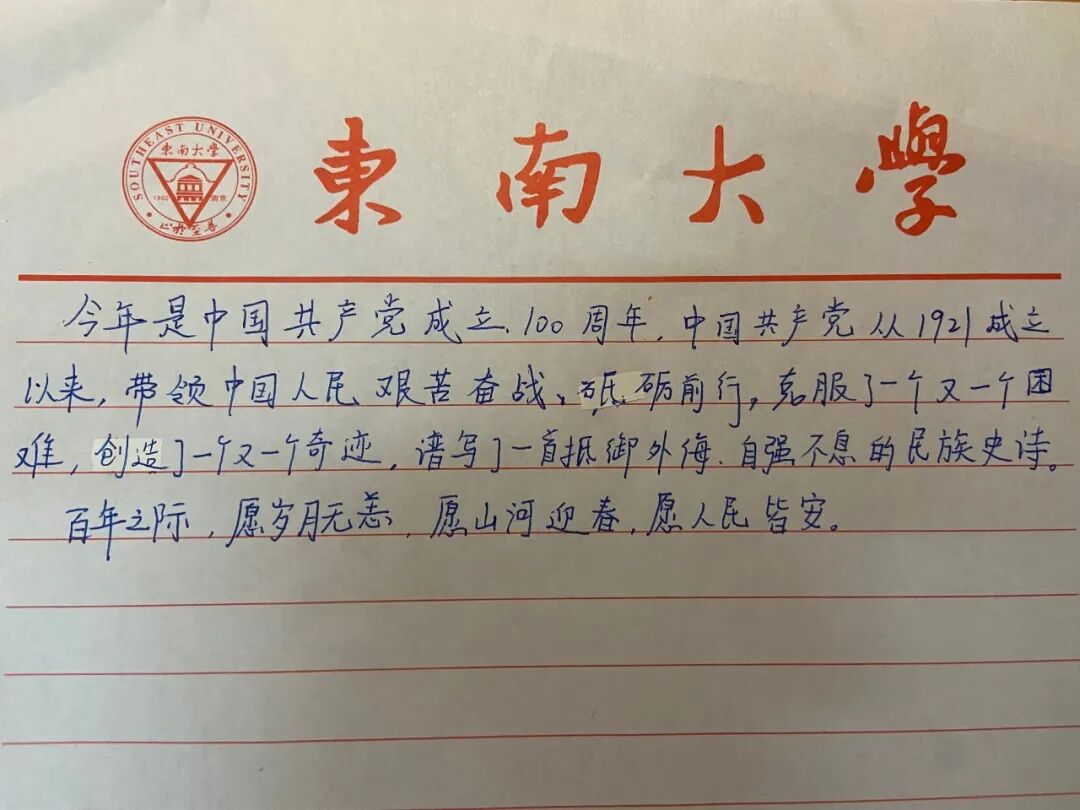 SOUTHEAST UNIVERSITY
東南大學
1902 南京
止於至善
東南大學
今年是中国共产党成立100周年,中国共产党从1921成立
以来,带领中国人民艰苦奋战、砥砺前行,克服了一个又一个困
难,创造了一个又一个奇迹,谱写了一首抵御外侮、自强不息的民族史诗。
百年之际,愿岁月无恙,愿山河迎春,愿人民皆安。